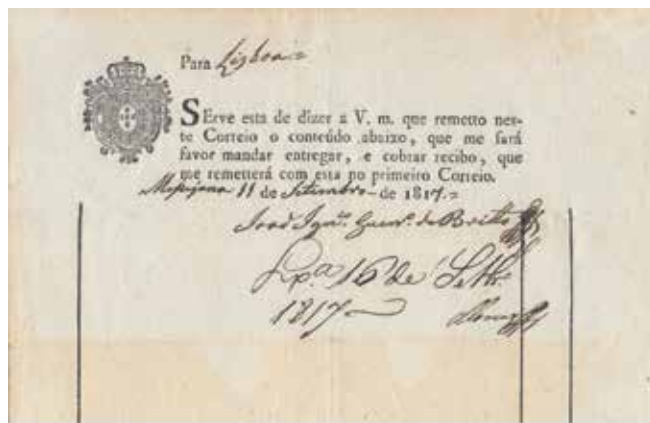 Para Lisboa =
SErve esta de dizer a V. m. que remetto nes-
te Correio o conteúdo abaixo, que me fará
favor mandar entregar, e cobrar recibo, que
me remetterá com esta no primeiro Correio.
Messejana 11 de Setembro de 1817. =
João Ign.º Guerr.º de Brito
Lx.ª 16 de Setbr.º
1817